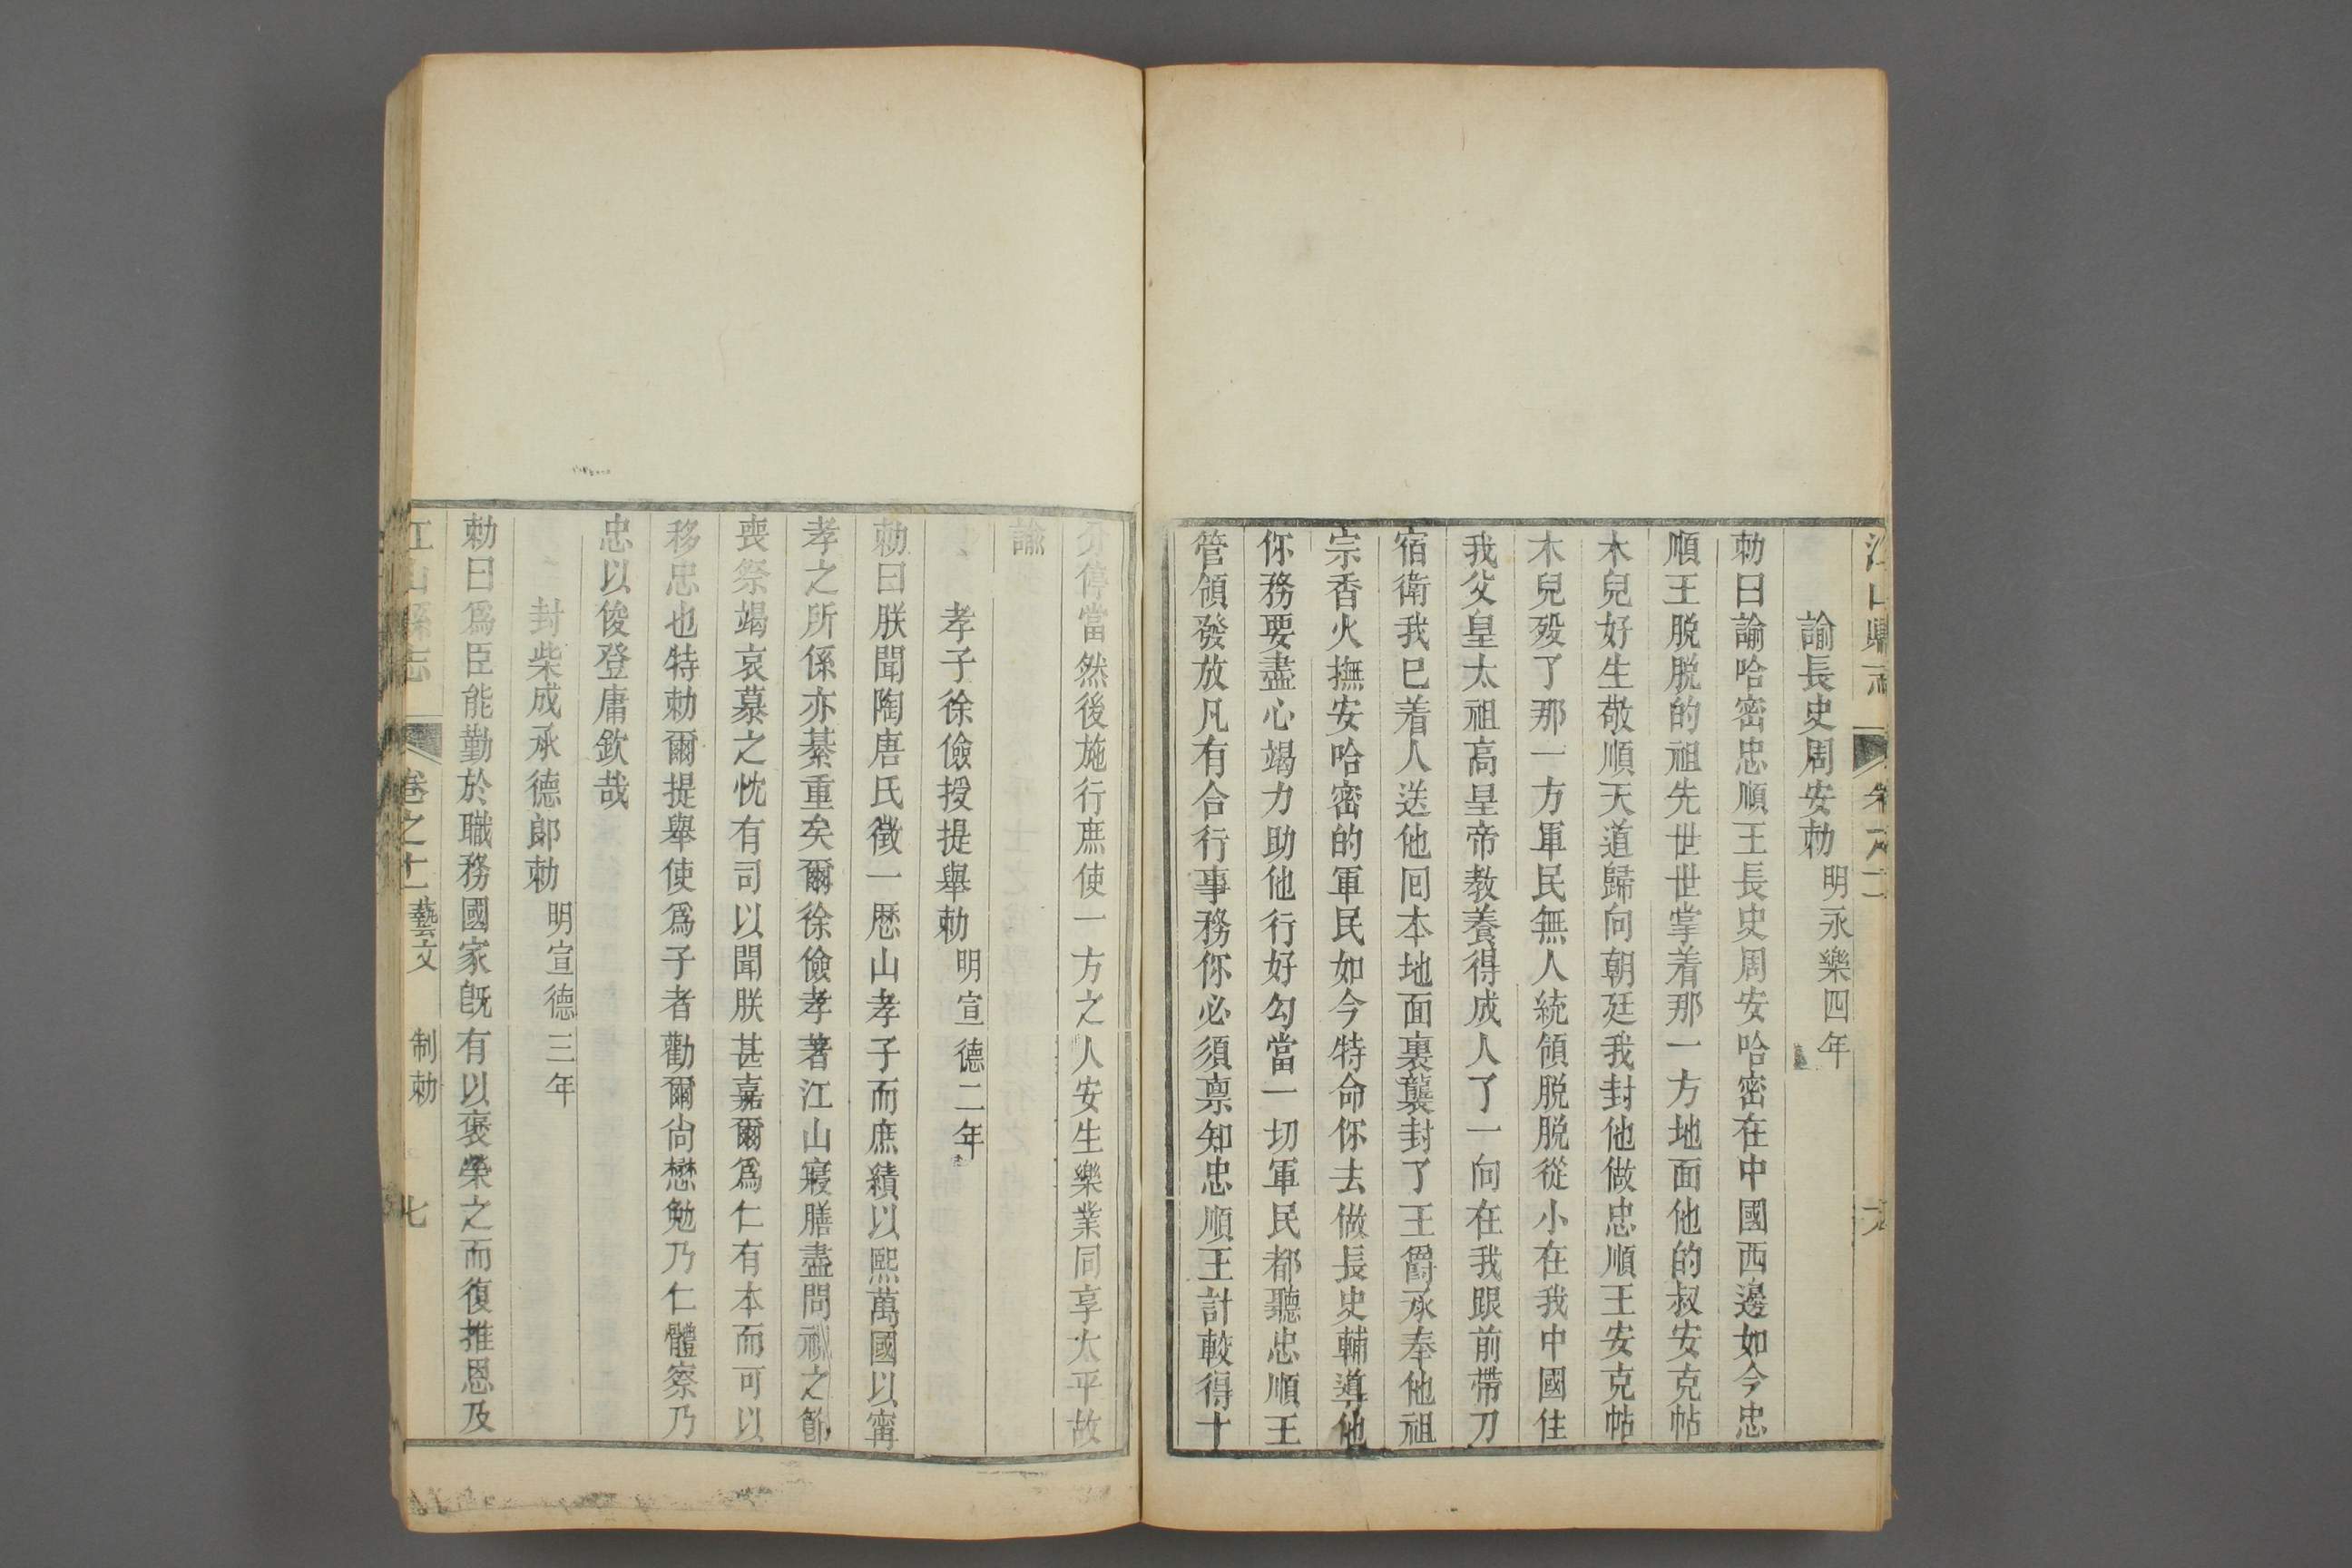 諭長史周安勅 明永樂四年
勅曰諭哈密忠順王長史周安哈密在中國西邊如今忠
順王脫脫的祖先世世掌着那一方地面他的叔安克帖
木兒好生敬順天道歸向朝廷我封他做忠順王安克帖
木兒歿了那一方軍民無人統領脫脫從小在我中國住
我父皇太祖高皇帝教養得成人了一向在我跟前帶刀
宿衛我已着人送他囘本地面裏襲封了王爵承奉他祖
宗香火撫安哈密的軍民如今特命你去做長史輔導他
你務要盡心竭力助他行好勾當一切軍民都聽忠順王
管領發放凡有合行事務你必須禀知忠順王計較得十
分停當然後施行庶使一方之人安生樂業同享太平故
諭
孝子徐儉授提舉勅 明宣德二年
勅曰朕聞陶唐氏徵一歷山孝子而庶績以熙萬國以寧
孝之所係亦綦重矣爾徐儉孝著江山寢膳盡問視之節
喪祭竭哀慕之忱有司以聞朕甚嘉爾爲仁有本而可以
移忠也特勅爾提舉使爲子者勸爾尚懋勉乃仁體察乃
忠以俊登庸欽哉
封柴成承德郎勅 明宣德三年
勅曰爲臣能勤於職務國家旣有以褒榮之而復推恩及
江山縣志 卷之十一 藝文 制勅 七